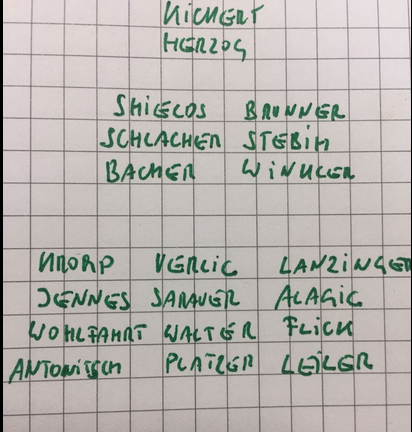 KICKERT
HERZOG
SHIELDS BRUNNER
SCHLACHER STEBIH
BACHER WINKLER
KRORP VERLIC LANZINGER
JENNES SARAUER ALAGIC
WOHLFAHRT WALTER FLICK
ANTONITSCH PLATZER LEILER